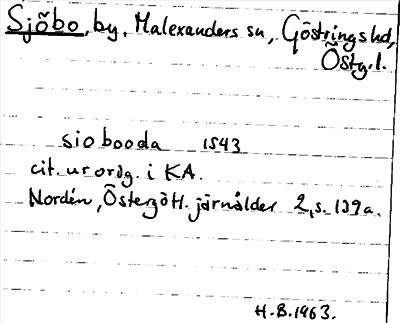 Sjöbo, by, Malexanders sn, Göstrings hd,
Östg. l.
siobooda 1543
cit. ur ordg. i KA.
Nordén, Östergötl. järnålder 2, s. 139a.
H.B. 1963.